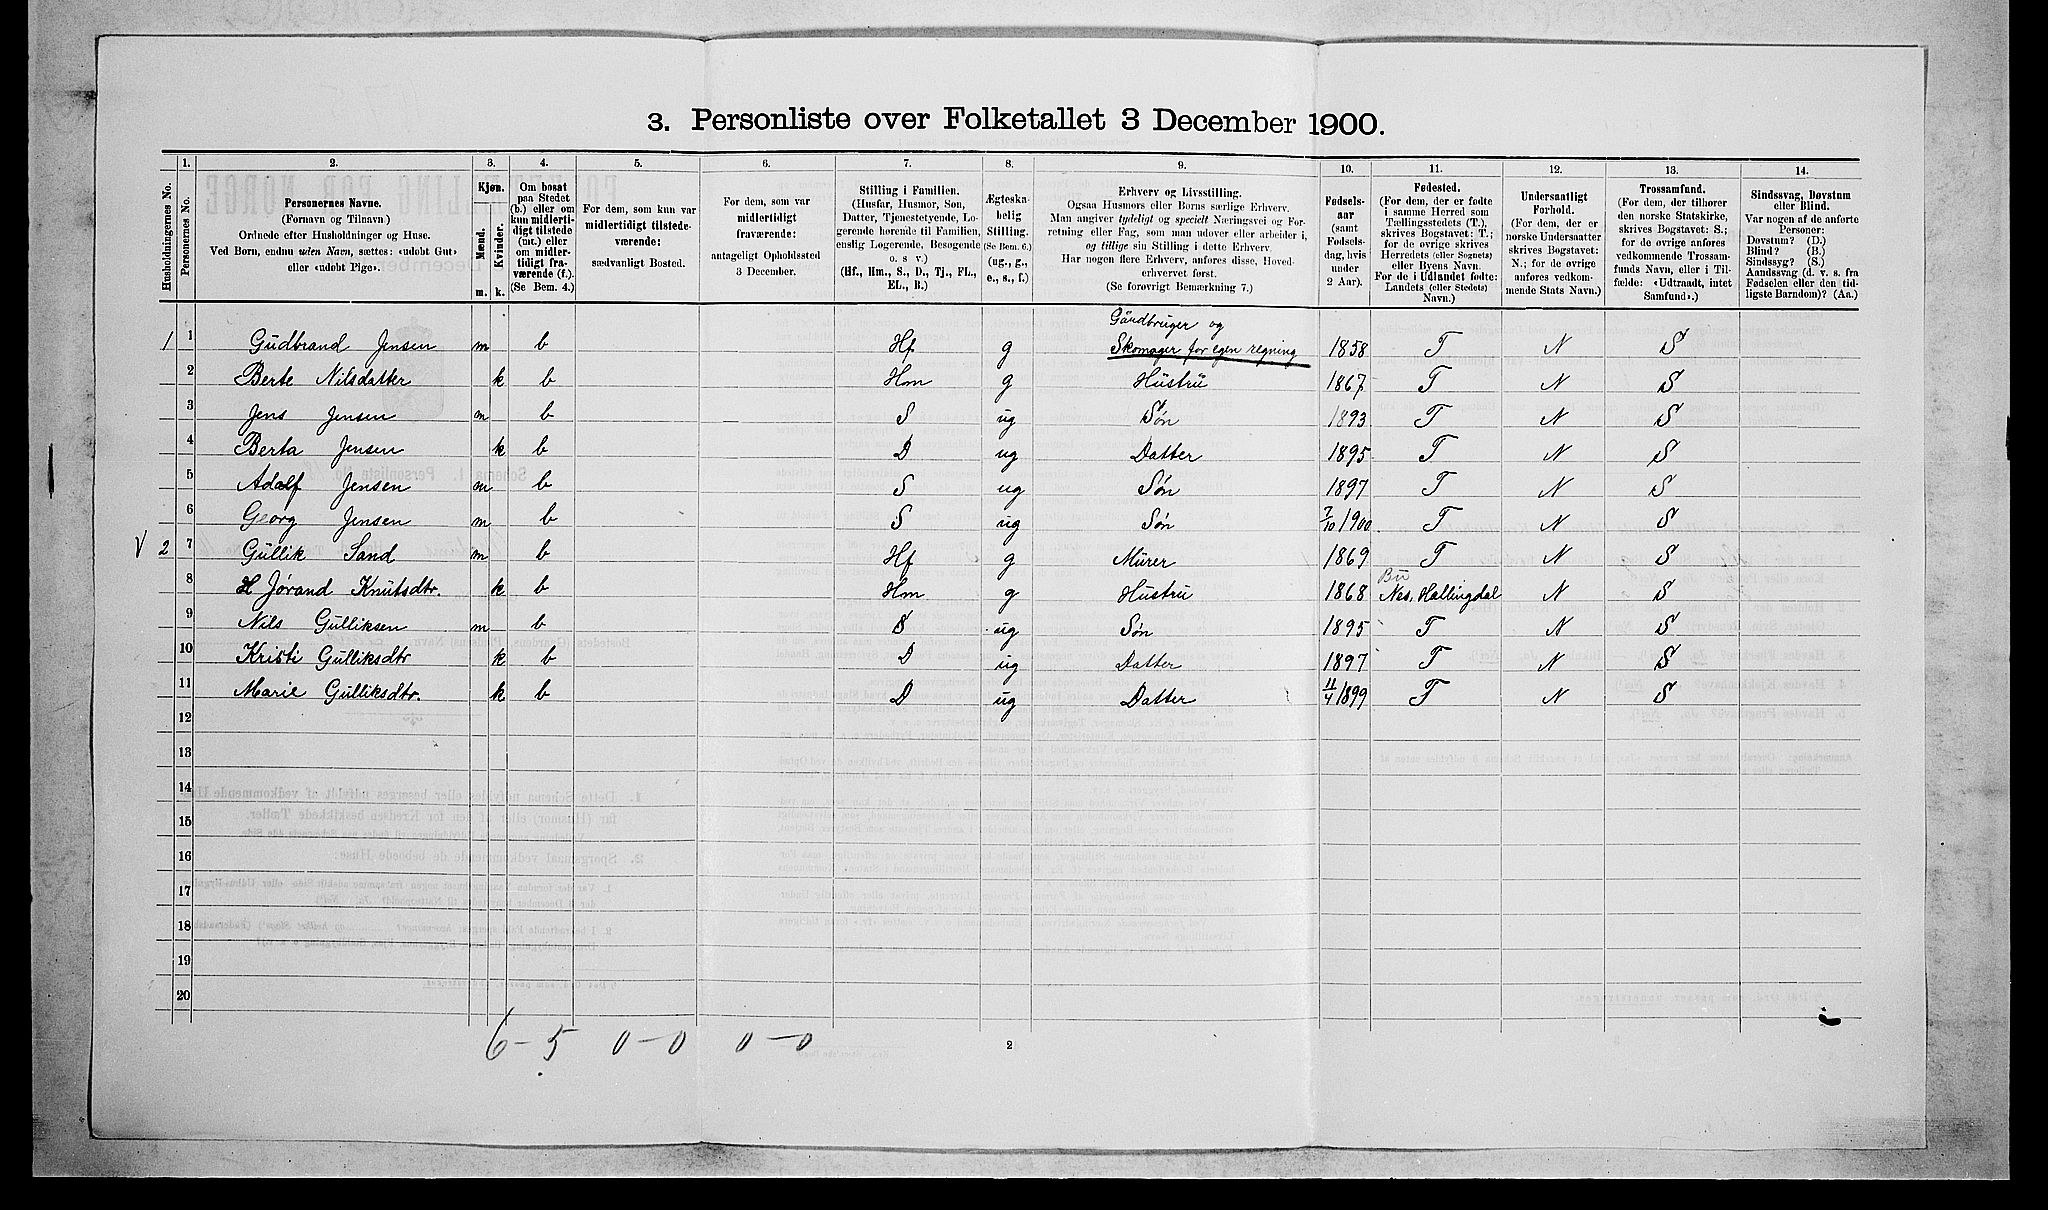 3. Personliste over Folketallet 3 December 1900.
1. 2. 3. 4. 5. 6. 7. 8. 9. 10. 11. 12. 13. 14.
Husholdningernes No.
Personernes No.
Personernes Navne.
(Fornavn og Tilnavn.)
Ordnede efter Husholdninger og Huse.
Ved Børn, endnu uden Navn, sættes: «udøbt Gut»
eller «udøbt Pige».
Kjøn.
Mænd. Kvinder.
m. k.
Om bosat
paa Stedet
(b.) eller om
kun midlerti-
digt tilstede
(mt.) eller
om midler-
tidigt fra-
værende (f.).
(Se Bem. 4.)
For dem, som kun var
midlertidigt tilstede-
værende:
sædvanligt Bosted.
For dem, som var
midlertidigt
fraværende:
antageligt Opholdssted
3 December.
Stilling i Familien.
(Husfar, Husmor, Søn,
Datter, Tjenestetyende, Lo-
gerende hørende til Familien,
enslig Logerende, Besøgende
o. s. v.)
(Hf., Hm., S., D., Tj., FL.,
EL., B.)
Ægteska-
belig
Stilling.
(Se Bem. 6.)
(ug., g.,
e., s., f.)
Erhverv og Livsstilling.
Ogsaa Husmors eller Børns særlige Erhverv.
Man angiver tydeligt og specielt Næringsvei og For-
retning eller Fag, som man udøver eller arbeider i,
og tillige sin Stilling i dette Erhverv.
Har nogen flere Erhverv, anføres disse, Hoved-
erhvervet først.
(Se forøvrigt Bemærkning 7.)
Fødsels-
aar
(samt
Fødsels-
dag, hvis
under
2 Aar).
Fødested.
(For dem, der er fødte
i samme Herred som
Tællingsstedets (T.),
skrives Bogstavet: T.;
for de øvrige skrives
Herredets (eller Sognets)
eller Byens Navn.
For de i Udlandet fødte:
Landets (eller Stedets)
Navn.)
Undersaatligt
Forhold.
(For dem, der er
norske Undersaatter
skrives Bogstavet:
N.; for de øvrige
anføres vedkom-
mende Stats Navn.)
Trossamfund.
(For dem, der tilhører
den norske Statskirke,
skrives Bogstavet: S.;
for de øvrige anføres
vedkommende Trossam-
funds Navn, eller i Til-
fælde: «Udtraadt, intet
Samfund».)
Sindssvag, Døvstum
eller Blind.
Var nogen af de anførte
Personer:
Døvstum? (D.)
Blind? (B.)
Sindssyg? (S.)
Aandssvag (d. v. s. fra
Fødselen eller den tid-
ligste Barndom)? (Aa.)
1 1 Gudbrand Jensen m b Hf g Gårdbruger og Skomager for egen regning 1858 T N S
2 Berte Nilsdatter k b Hm g Hustru 1867 T N S
3 Jens Jensen m b S ug Søn 1893 T N S
4 Berta Jensen k b D ug Datter 1895 T N S
5 Adolf Jensen m b S ug Søn 1897 T N S
6 Georg Jensen m b S ug Søn 7/10 1900 T N S
V 2 7 Gullik Sand m b Hf g Murer 1869 T N S
8 Jørand Knutsdtr. k b Hm g Hustru 1868 Bu Nes, Hallingdal N S
9 Nils Gulliksen m b S ug Søn 1895 T N S
10 Kristi Gulliksdtr k b D ug Datter 1897 T N S
11 Marie Gulliksdtr. k b D ug Datter 11/4 1899 T N S
12
13
14
15
16
17
18
19
20
6 - 5 0 - 0 0 - 0
2